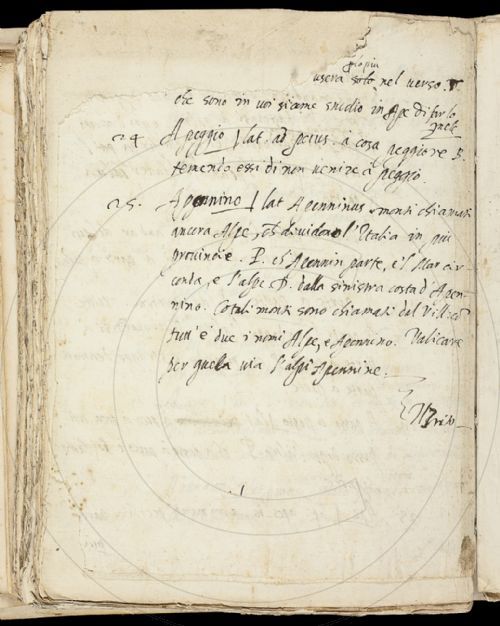 più
usera solo nel verso.
che sono in voi siamo
24 Apeggio lat. ad peius. a cosa peggiore B.
temendo essi di non venire à peggio.
25. Apennino lat Apenninus monti chiamati
ancora Alpe, che dividono l'Italia in più
provincie. P. ch'Apennin parte, e'l Mar cir
conda, e l'alpe D. dalla sinistra costa d'Apen-
nino. Cotali monti sono chiamati dal Vill. cō
tutt'è due i nomi Alpe, e Apennino. Valicare
per quella via l'alpi Apennine.